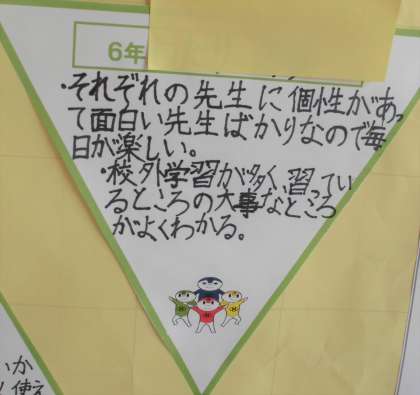 6年
・それぞれの先生に個性があっ
て面白い先生ばかりなので毎
日が楽しい。
・校外学習が多く、習ってい
るところの大事なところ
がよくわかる。
いか
使え